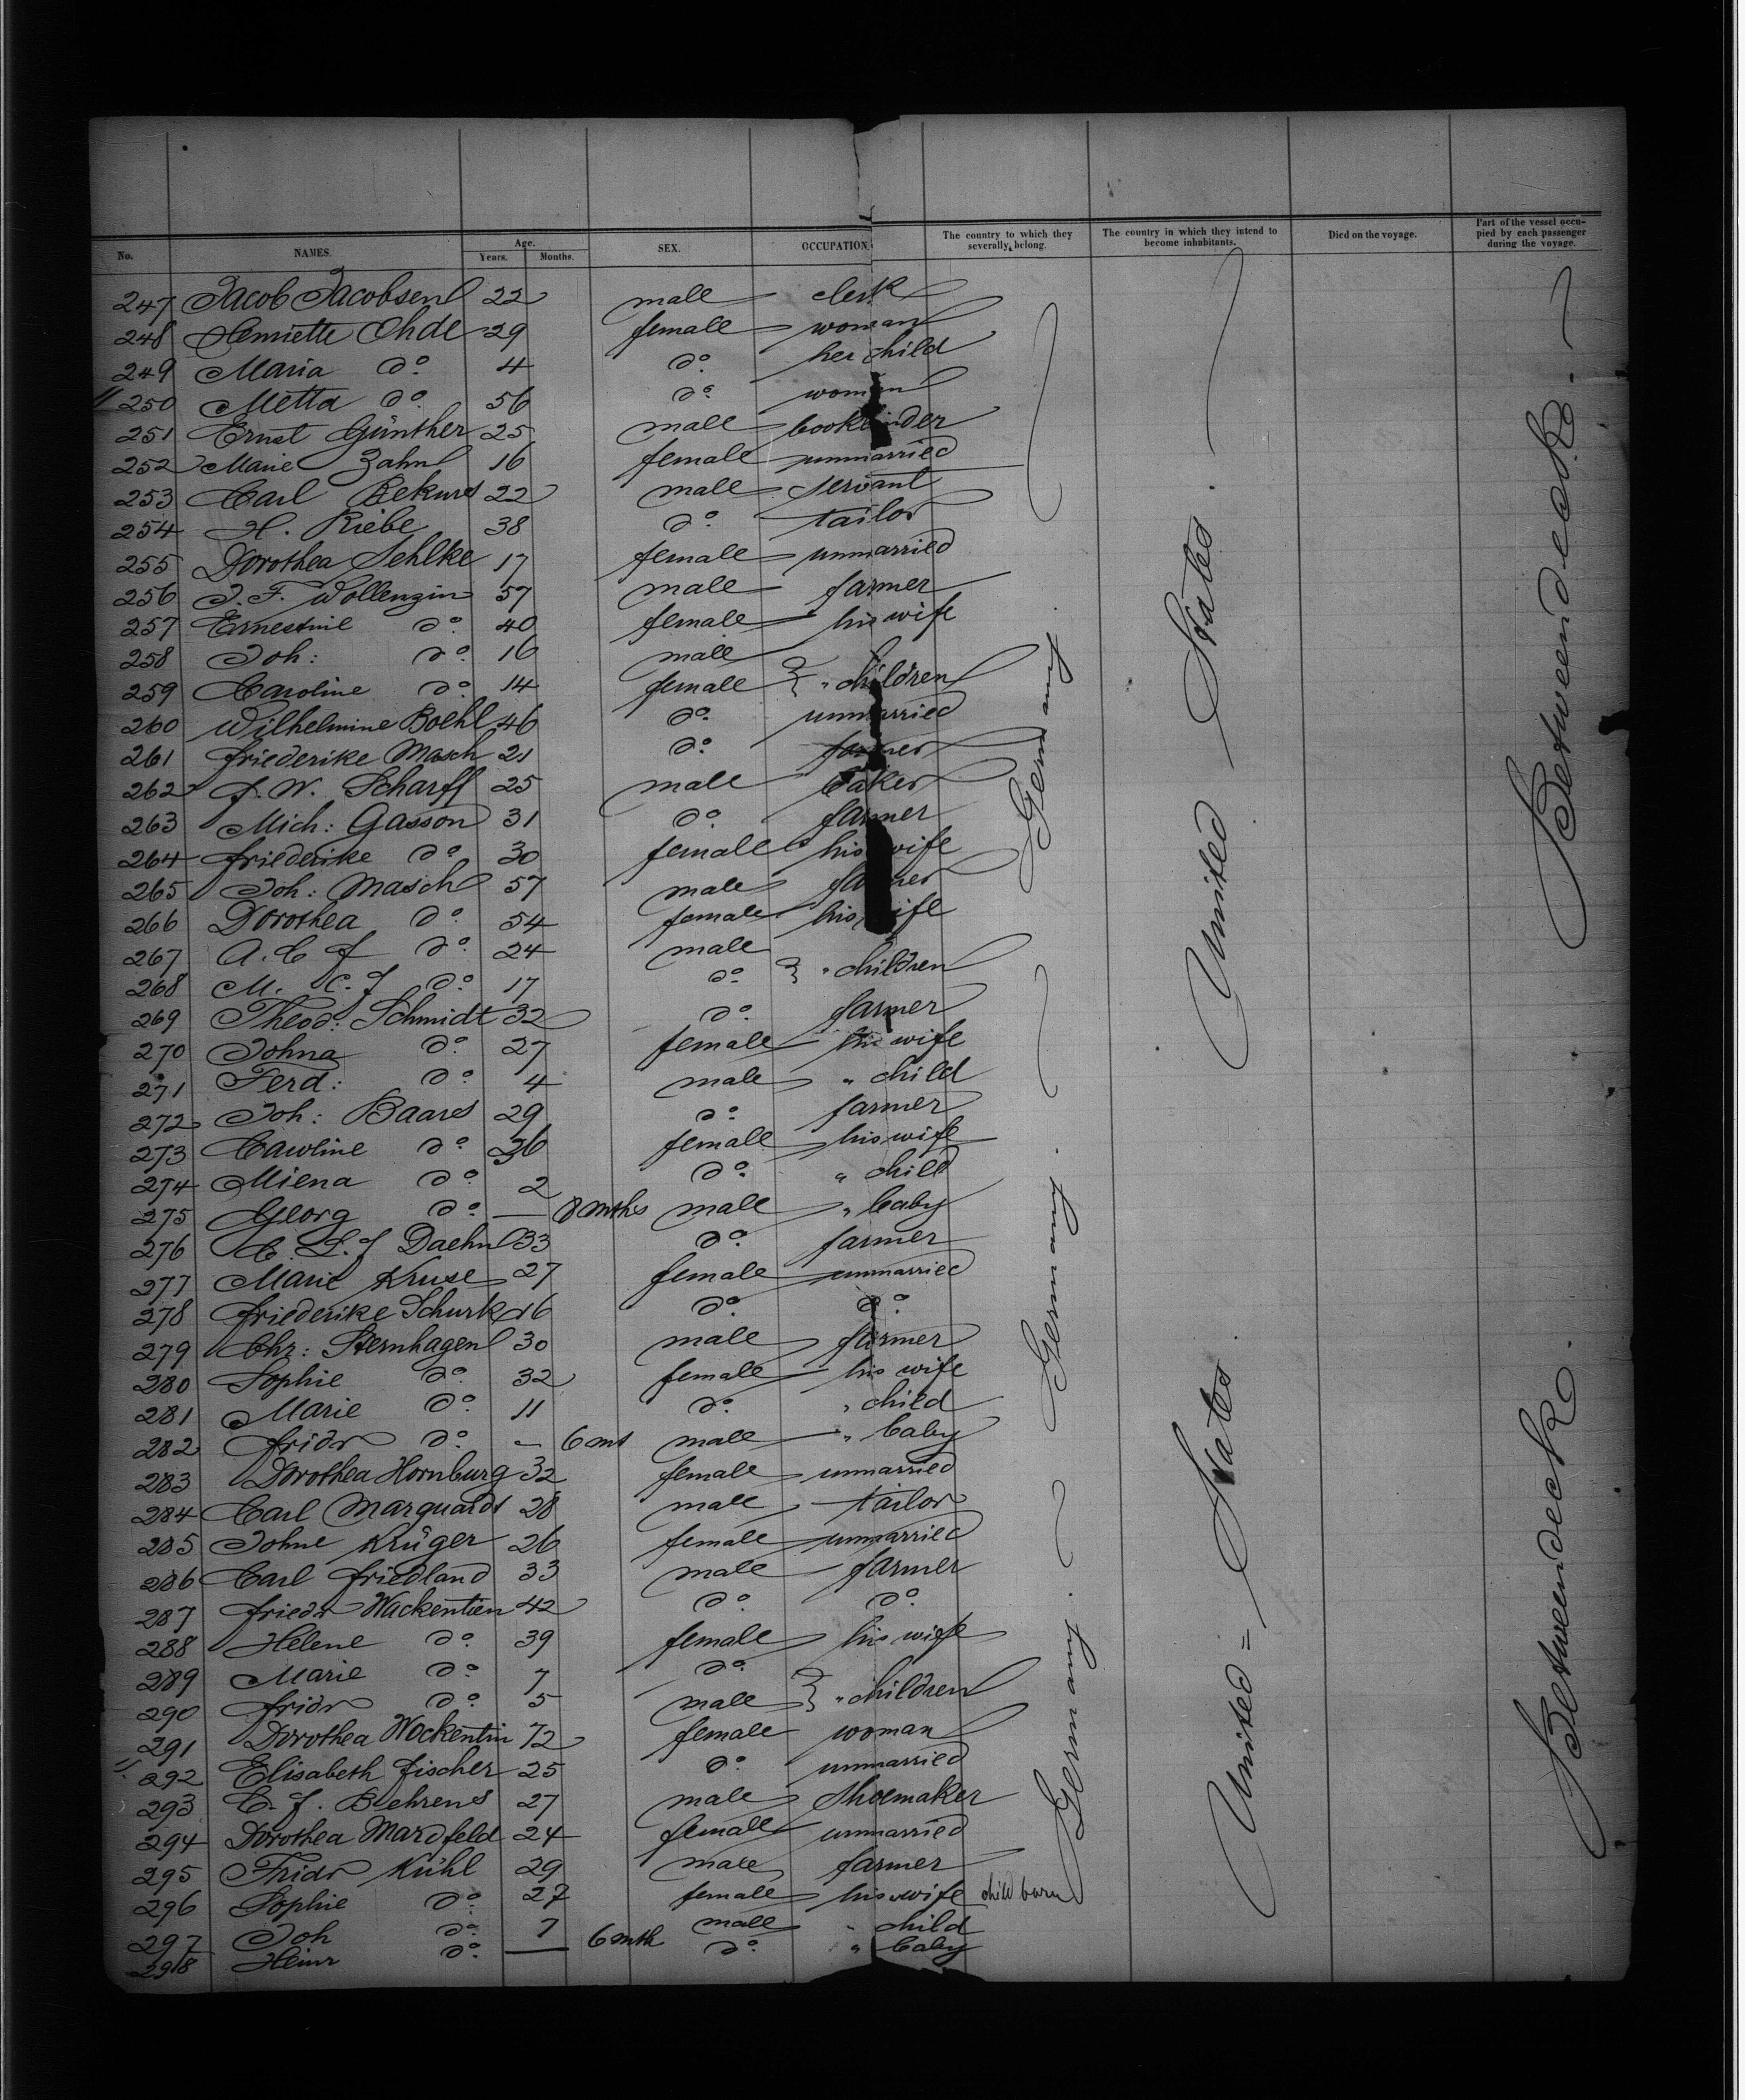 No. NAMES. Age. Years. Months. SEX. OCCUPATION The country to which they severally belong. The country in which they intend to become inhabitants. Died on the voyage. Part of the vessel occupied by each passenger during the voyage.
247 Jacob Jacobsen 22 male clerk
248 Henriette Ohde 29 female woman
249 Maria do. 4 do. her child
250 Metta do. 56 do. woman
251 Ernst Günther 25 male bookbinder
252 Marie Zahn 16 female unmarried
253 Carl 22 male servant
254 H. Riebe 38 do. tailor
255 Dorothea Sehlke 17 female unmarried
256 J. F. Wollenzin 57 male farmer
257 Ernestine do. 40 female his wife
258 Joh: do. 16 male
259 Caroline do. 14 female } " children
260 Wilhelmine Boehl 46 do. unmarried
261 Friederike Masch 21 do. farmer
262 F. W. Scharff 25 male baker
263 Mich: Gasson 31 do. farmer
264 Friederike do. 30 female his wife
265 Joh: Masch 57 male farmer
266 Dorothea do. 54 female his wife
267 A. C. F do. 24 male
268 M. C. F do. 17 do. } " children
269 Theod: Schmidt 32 do. farmer
270 Johna do. 27 female his wife
271 Ferd: do. 4 male " child
272 Joh: Baars 29 do. farmer
273 Caroline do. 26 female his wife
274 Miena do. 2 do. " child
275 Georg do. — 8 mths male " baby
276 C. L. F Daehn 33 do. farmer
277 Marie Kruse 27 female unmarried
278 Friederike Schurk 16 do. do.
279 Chr: Sternhagen 30 male farmer
280 Sophie do. 32 female his wife
281 Marie do. 11 do. " child
282 Fridr do. — 6 mt male " baby
283 Dorothea Hornburg 32 female unmarried
284 Carl Marquardt 28 male tailor
285 Johne Krüger 26 female unmarried
286 Carl Friedland 33 male farmer
287 Friedr Wackentien 42 do. do.
288 Helene do. 39 female his wife
289 Marie do. 7 do.
290 Fridr do. 5 male } " children
291 Dorothea Wockentin 72 female woman
292 Elisabeth Fischer 25 do. unmarried
293 C. F. Behrens 27 male Shoemaker
294 Dorothea Mardfeld 24 female unmarried
295 Fridr Kühl 29 male farmer
296 Sophie do. 27 female his wife child born
297 Joh do. 7 male " child
298 Heinr do. — 6 mth do. " baby
Germany.
Germany.
Germany.
United States.
United = States.
Betweendeck.
Betweendeck.